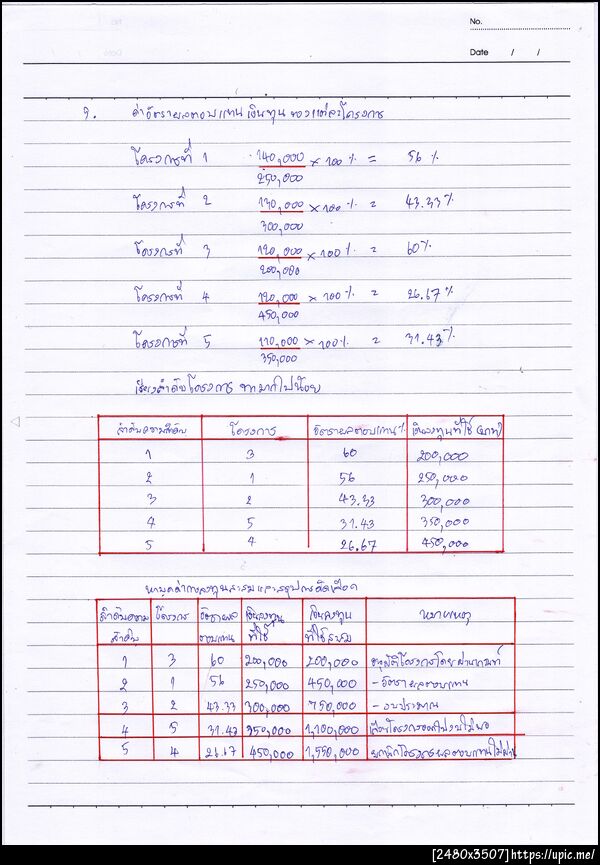 No.
Date / /
หาอัตราผลตอบแทนเงินทุนของแต่ละโครงการ
โครงการที่ 1 140,000 × 100 % = 56 %
250,000
โครงการที่ 2 130,000 × 100 % = 43.33 %
300,000
โครงการที่ 3 120,000 × 100 % = 60 %
200,000
โครงการที่ 4 120,000 × 100 % = 26.67 %
450,000
โครงการที่ 5 110,000 × 100 % = 31.43 %
350,000
เรียงลำดับโครงการ จากมากไปน้อย
ลำดับความสำคัญ โครงการ อัตราผลตอบแทน % เงินลงทุนที่ใช้ (บาท)
1 3 60 200,000
2 1 56 250,000
3 2 43.33 300,000
4 5 31.43 350,000
5 4 26.67 450,000
หามูลค่าการลงทุนสะสมและสรุปการคัดเลือก
ลำดับความ โครงการ อัตราผล เงินลงทุน เงินลงทุน หมายเหตุ
สำคัญ ตอบแทน ที่ใช้ ที่ใช้สะสม
1 3 60 200,000 200,000 อนุมัติโครงการโดยผ่านเกณฑ์
2 1 56 250,000 450,000 - อัตราผลตอบแทน
3 2 43.33 300,000 750,000 - งบประมาณ
4 5 31.43 350,000 1,100,000
5 4 26.67 450,000 1,550,000
[2480x3507]https://upic.me/